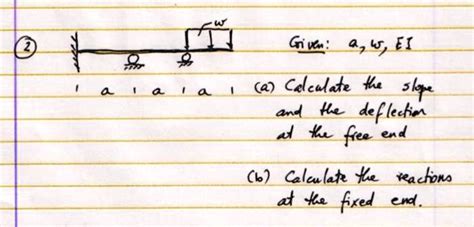 2
w
Given: a, w, EI
a a a
(a) Calculate the slope
and the deflection
at the free end
(b) Calculate the reactions
at the fixed end.